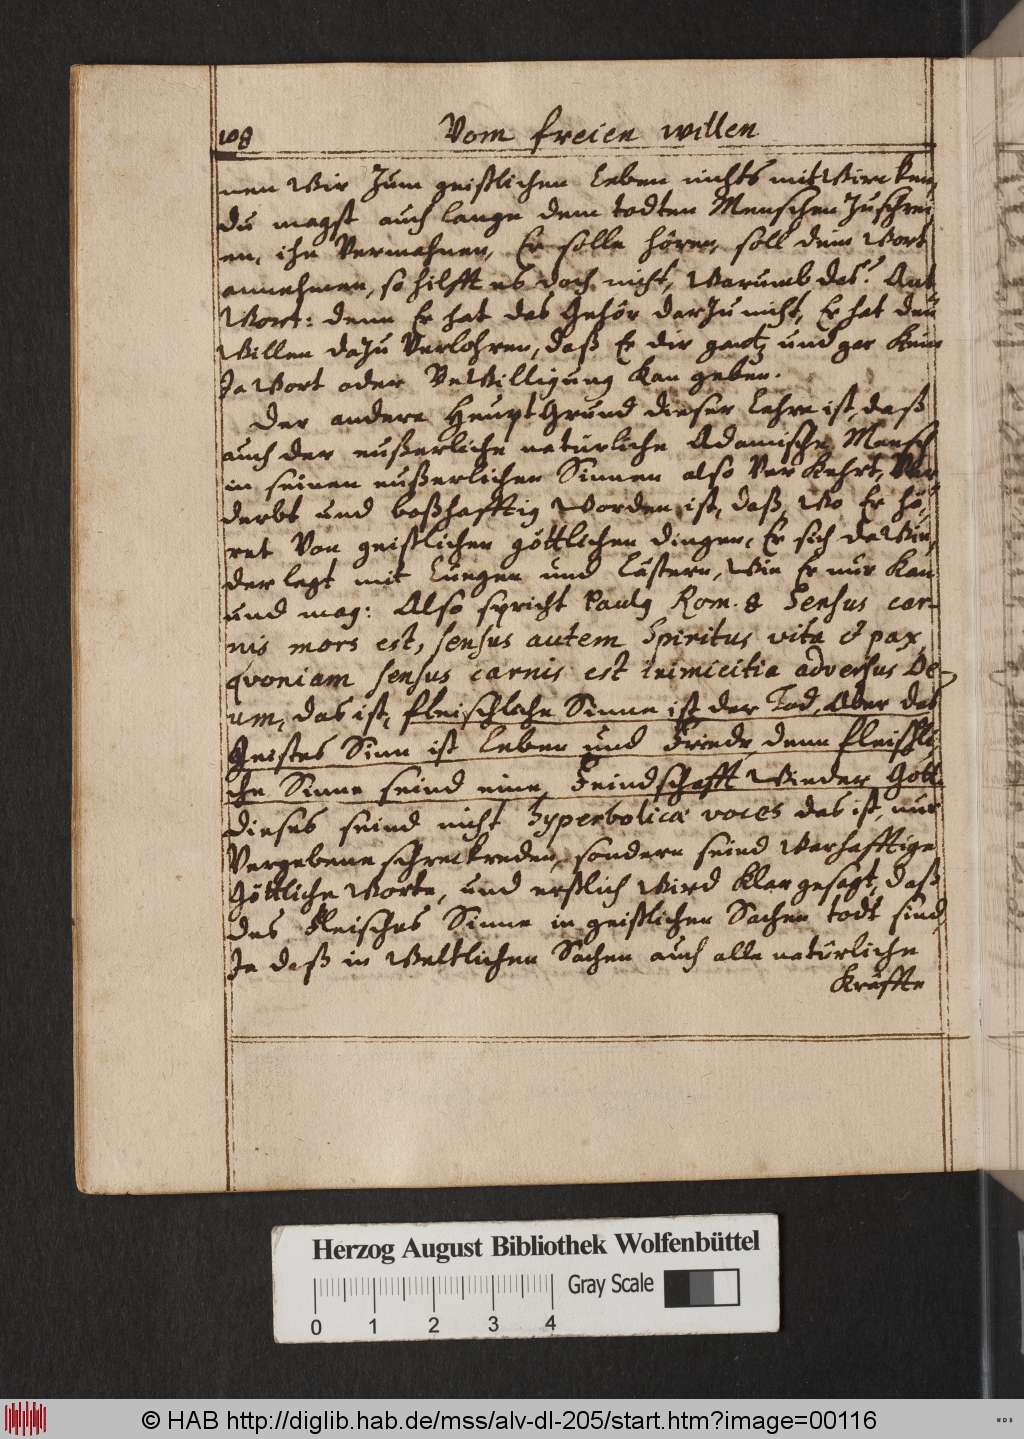 108
Vom freien willen
nen Wir Zum geistlichen Leben nichts mitWircken,
du magst auch lange dem todten Menschen Zuschrei
en, ihn Vermahnen, Er solle hören, soll dein Wort
annehmen, so hilfft es doch nicht, Warumb das? Ant
Wort: denn Er hat das Gehör darzu nicht, Er hat den
Willen dazu Verlohren, daß Er dir gantz und gar Kein
JaWort oder BeWilligung Kan geben.
Der andere HeuptGrund dieser Lehre ist, daß
auch der eußerliche natürliche Adamische Mensch
in seinen eußerlichen Sinnen also VerKehrt, Ver
derbt und boßhafftig Worden ist, daß, Wo Er hö,
ret Von geistlichen göttlichen dingen, Er sich daWie,
der legt mit Liegen und Lästern, Wie Er nur Kan
und mag: Also spricht Paulg Rom. 8 Sensus car-
nis mors est, sensus autem Spiritus vita & pax,
qvoniam sensus carnis est inimicitia adversus De-
um, das ist, fleischliche Sinne ist der Tod, Aber des
Geistes Sinn ist Leben und Friede, denn fleischli
che Sinne seind eine Feindschafft Wieder Gott.
dieses seind nicht hyperbolicæ voces das ist, nur
Vergebene schreckreden, sondern seind Warhafftige
Göttliche Worte, und erstlich Wird Klar gesagt, daß
des Fleisches Sinne in geistlichen Sachen todt sind,
Ja daß in Weltlichen Sachen auch alle natürliche
Kräffte
Herzog August Bibliothek Wolfenbüttel
Gray Scale
0 1 2 3 4
© HAB http://diglib.hab.de/mss/alv-dl-205/start.htm?image=00116